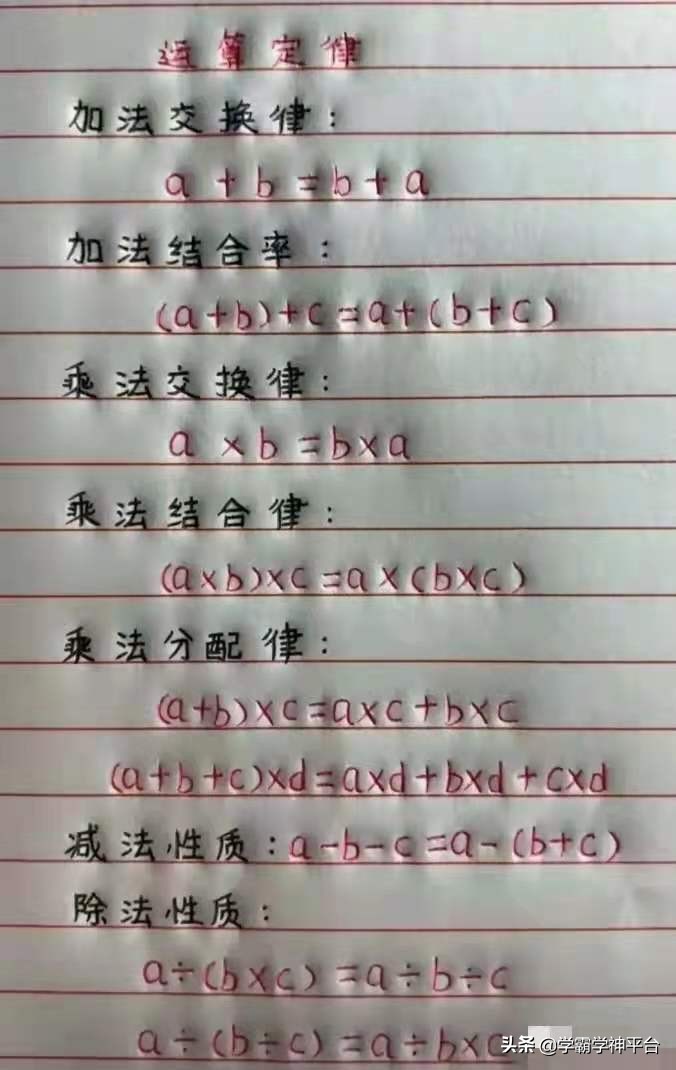 运算定律
加法交换律：
a+b=b+a
加法结合率：
(a+b)+c=a+(b+c)
乘法交换律：
a×b=b×a
乘法结合律：
(a×b)×c=a×(b×c)
乘法分配律：
(a+b)×c=a×c+b×c
(a+b+c)×d=a×d+b×d+c×d
减法性质：a-b-c=a-(b+c)
除法性质：
a÷(b×c)=a÷b÷c
a÷(b÷c)=a÷b×c
头条 @学霸学神平台